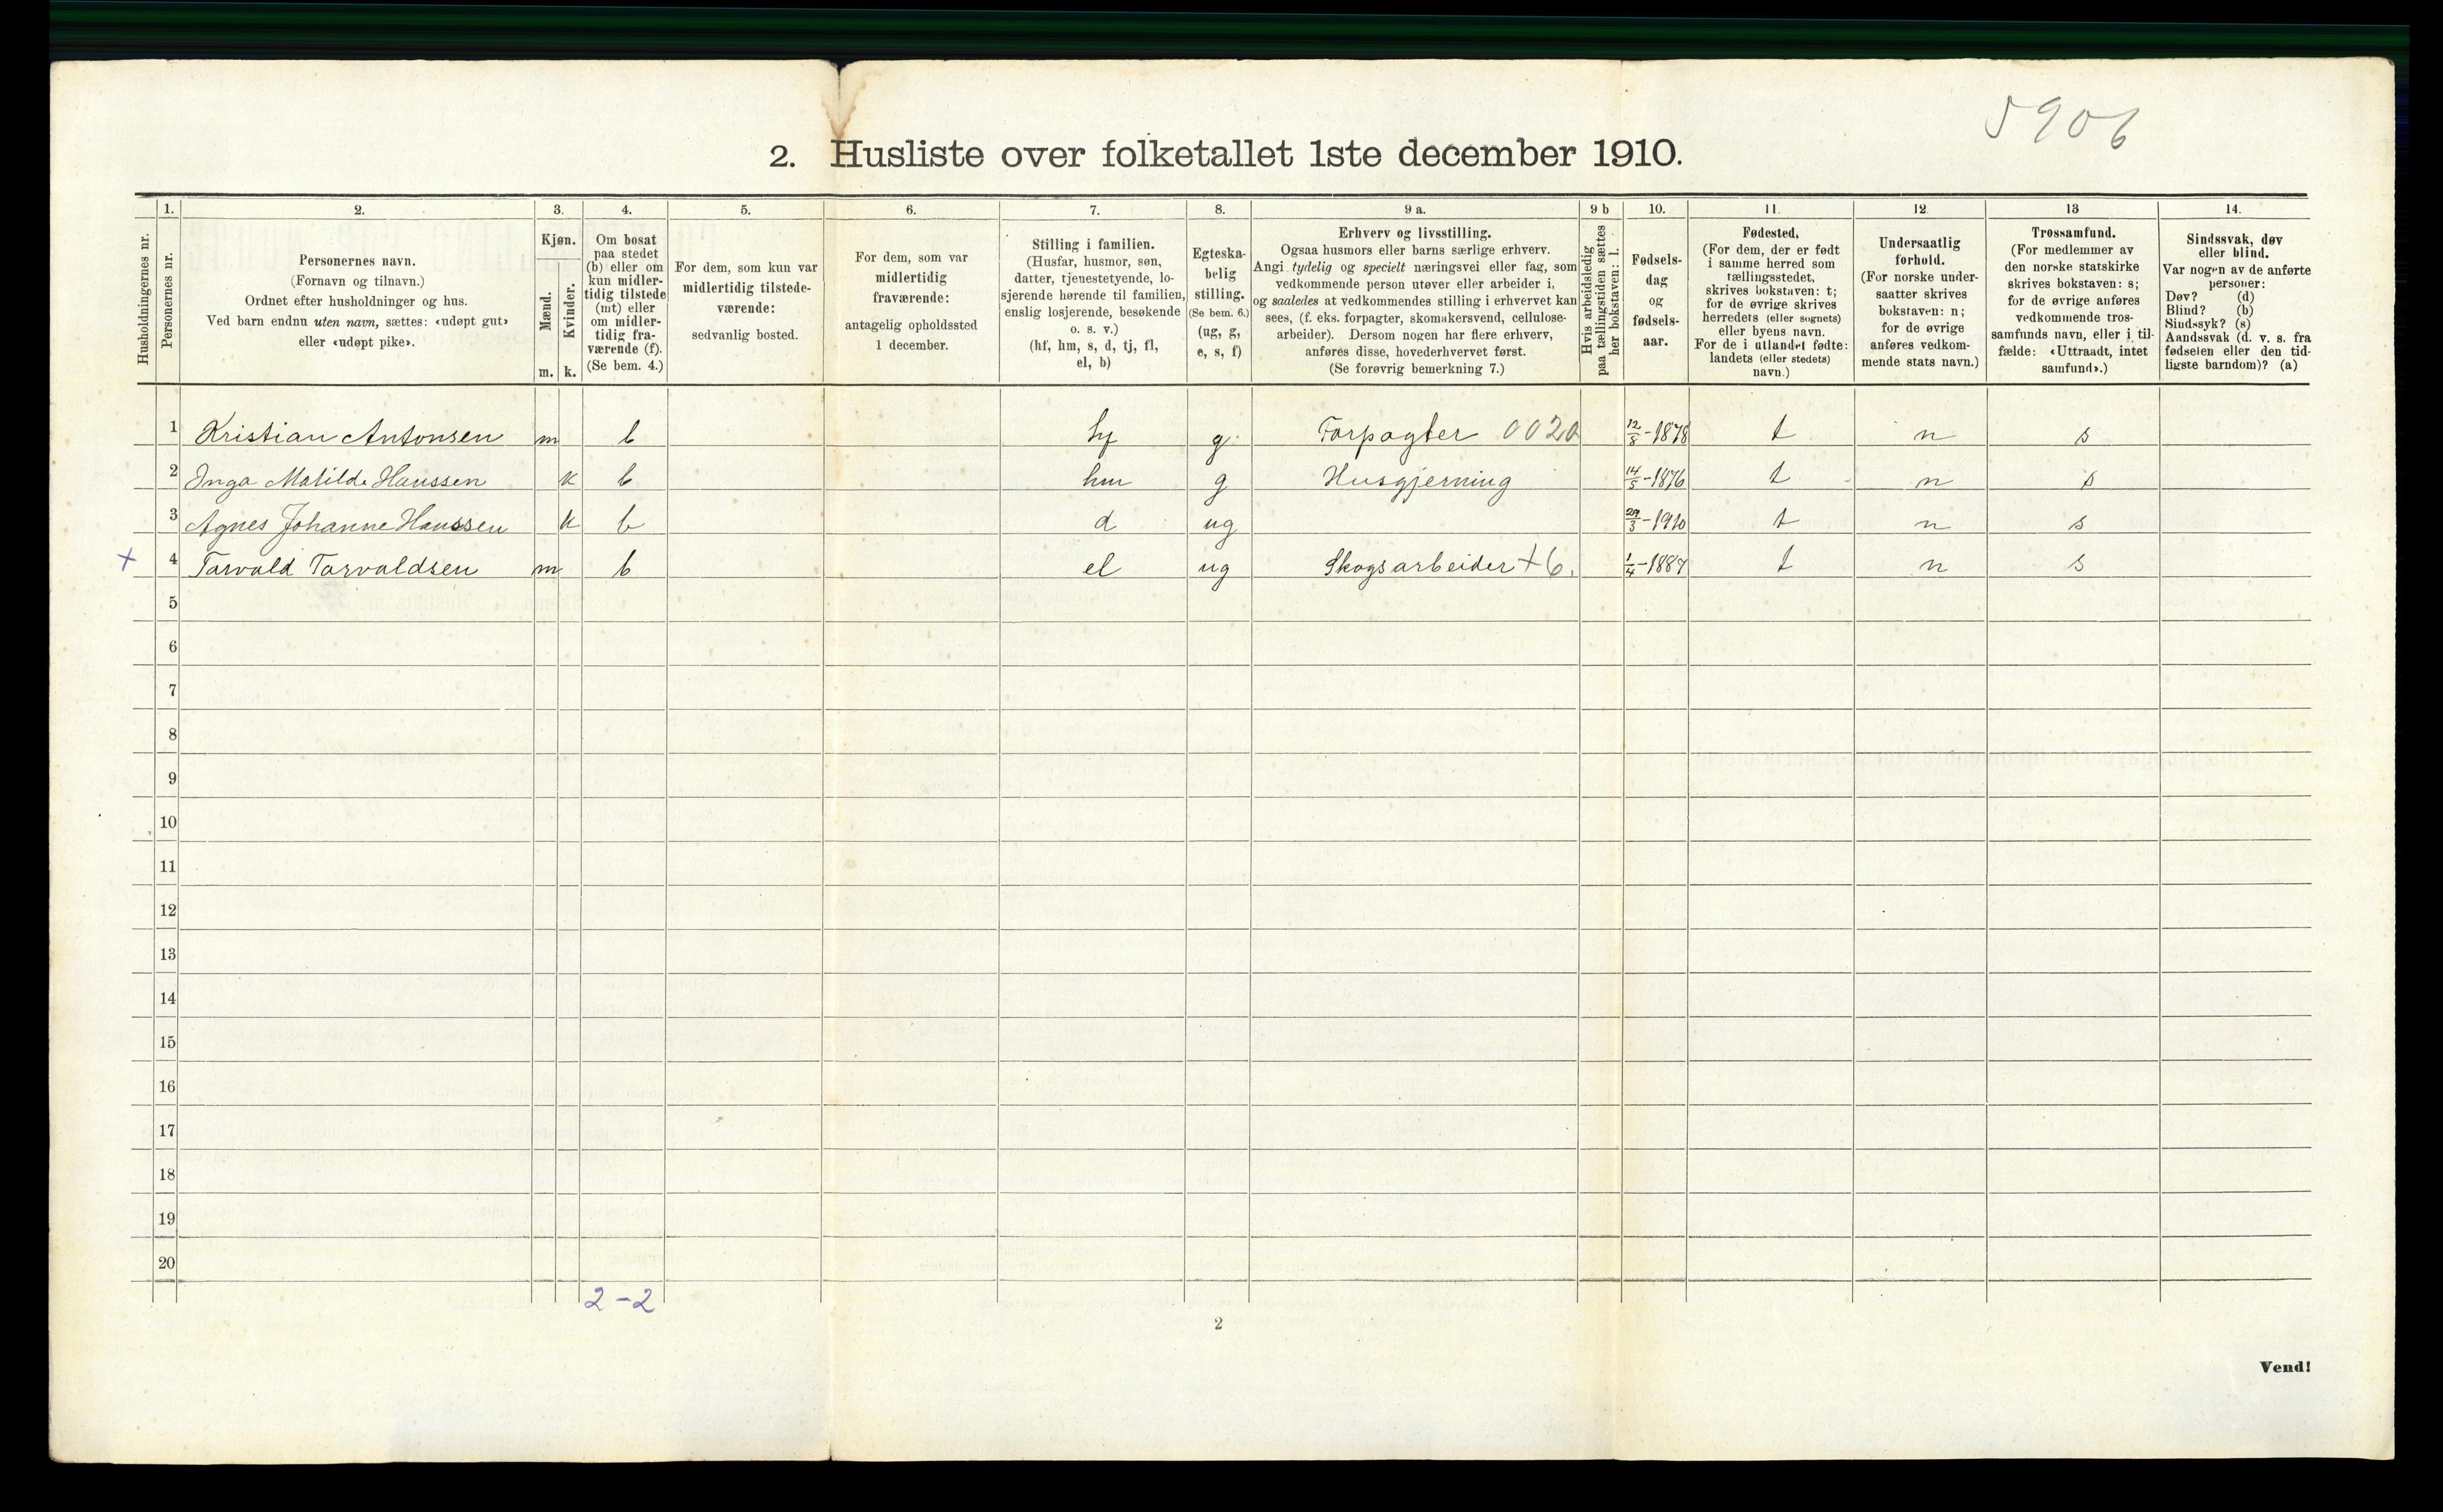 5906
2. Husliste over folketallet 1ste december 1910.
Husholdningernes nr.
1.
Personernes nr.
2.
Personernes navn.
(Fornavn og tilnavn.)
Ordnet efter husholdninger og hus.
Ved barn endnu uten navn, sættes: «udøpt gut»
eller «udøpt pike».
3.
Kjøn.
Mænd.
Kvinder.
m. k.
4.
Om bosat
paa stedet
(b) eller om
kun midler-
tidig tilstede
(mt) eller
om midler-
tidig fra-
værende (f).
(Se bem. 4.)
5.
For dem, som kun var
midlertidig tilstede-
værende:
sedvanlig bosted.
6.
For dem, som var
midlertidig
fraværende:
antagelig opholdssted
1 december.
7.
Stilling i familien.
(Husfar, husmor, søn,
datter, tjenestetyende, lo-
sjerende hørende til familien,
enslig losjerende, besøkende
o. s. v.)
(hf, hm, s, d, tj, fl,
el, b)
8.
Egteska-
belig
stilling.
(Se bem. 6.)
(ug, g,
e, s, f)
9 a.
Erhverv og livsstilling.
Ogsaa husmors eller barns særlige erhverv.
Angi tydelig og specielt næringsvei eller fag, som
vedkommende person utøver eller arbeider i,
og saaledes at vedkommendes stilling i erhvervet kan
sees, (f. eks. forpagter, skomakersvend, cellulose-
arbeider). Dersom nogen har flere erhverv,
anføres disse, hovederhvervet først.
(Se forøvrig bemerkning 7.)
9 b
Hvis arbeidsledig
paa tællingstiden sættes
her bokstaven: l.
10.
Fødsels-
dag
og
fødsels-
aar.
11.
Fødested,
(For dem, der er født
i samme herred som
tællingsstedet,
skrives bokstaven: t;
for de øvrige skrives
herredets (eller sognets)
eller byens navn.
For de i utlandet fødte:
landets (eller stedets)
navn.)
12.
Undersaatlig
forhold.
(For norske under-
saatter skrives
bokstaven: n;
for de øvrige
anføres vedkom-
mende stats navn.)
13
Trossamfund.
(For medlemmer av
den norske statskirke
skrives bokstaven: s;
for de øvrige anføres
vedkommende tros-
samfunds navn, eller i til-
fælde: «Uttraadt, intet
samfund».)
14.
Sindssvak, døv
eller blind.
Var nogen av de anførte
personer:
Døv? (d)
Blind? (b)
Sindssyk? (s)
Aandssvak (d. v. s. fra
fødselen eller den tid-
ligste barndom)? (a)
1 Kristian Antonsen m b hf g Forpagter 0020 12/8-1878 t n s
2 Inga Matilde Hanssen k b hm g Husgjerning 14/5-1876 t n s
3 Agnes Johanne Hanssen k b d ug 29/3-1910 t n s
+ 4 Torvald Torvaldsen m b el ug Skogsarbeider +6. 1/4-1887 t n s
5
6
7
8
9
10
11
12
13
14
15
16
17
18
19
20
2-2
2
Vend!